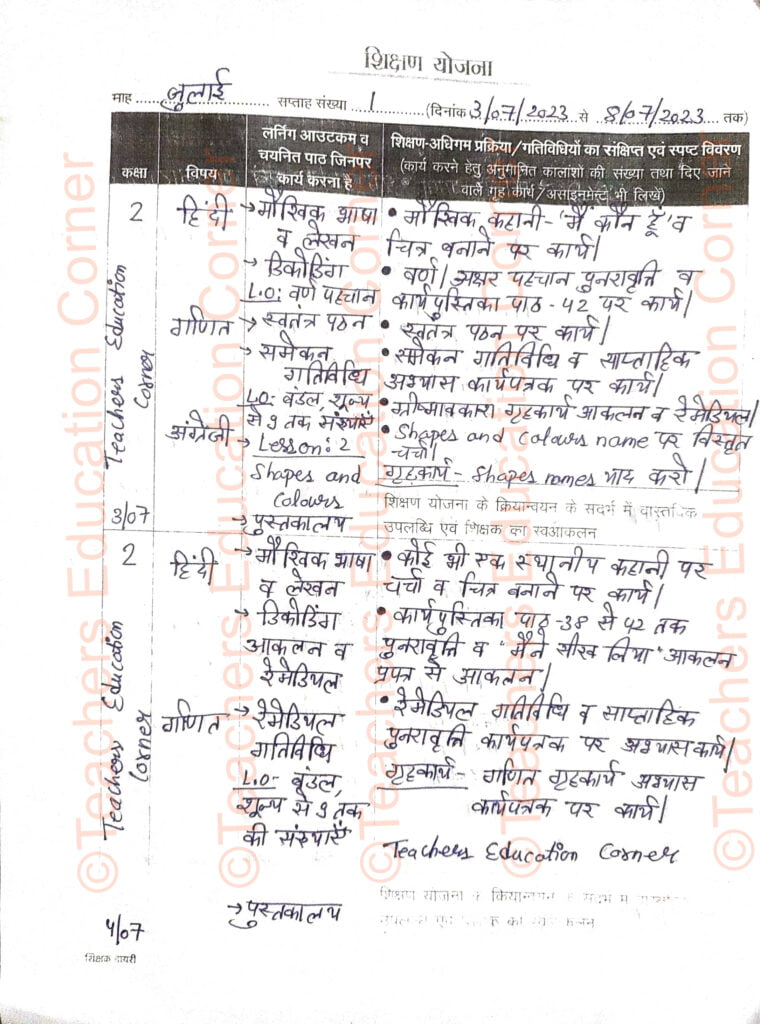 शिक्षण योजना
माह ... जुलाई ... सप्ताह संख्या ... 1 ... (दिनांक 3/07/2023 से 8/07/2023 तक)
कक्षा
विषय
लर्निंग आउटकम व
चयनित पाठ जिनपर
कार्य करना है
शिक्षण-अधिगम प्रक्रिया/गतिविधियों का संक्षिप्त एवं स्पष्ट विवरण
(कार्य करने हेतु अनुमानित कालांशों की संख्या तथा दिए जाने
वाले गृहकार्य/असाइनमेन्ट भी लिखें)
2
हिंदी
→ मौखिक भाषा
व लेखन
→ डिकोडिंग
L.O: वर्ण पहचान
• मौखिक कहानी - 'मैं कौन हूँ' व
चित्र बनाने पर कार्य।
• वर्ण/अक्षर पहचान पुनरावृत्ति व
कार्यपुस्तिका पाठ - 42 पर कार्य।
गणित
→ स्वतंत्र पठन
→ समेकन
गतिविधि
L.O: बंडल, शून्य
से 9 तक संख्याएँ
• स्वतंत्र पठन पर कार्य।
• समेकन गतिविधि व साप्ताहिक
अभ्यास कार्यपत्रक पर कार्य।
• ग्रीष्मावकाश गृहकार्य आकलन व रेमेडियल।
अंग्रेजी
→ Lesson: 2
Shapes and
Colours
→ पुस्तकालय
• Shapes and colours name पर विस्तृत
चर्चा।
गृहकार्य - Shapes names याद करो।
शिक्षण योजना के क्रियान्वयन के संदर्भ में वास्तविक
उपलब्धि एवं शिक्षक का स्वआकलन
Teachers Education
Corner
3/07
2
हिंदी
→ मौखिक भाषा
व लेखन
→ डिकोडिंग
आकलन व
रेमेडियल
• कोई भी एक स्थानीय कहानी पर
चर्चा व चित्र बनाने पर कार्य।
• कार्यपुस्तिका पाठ - 38 से 42 तक
पुनरावृत्ति व "मैंने सीख लिया" आकलन
प्रपत्र से आकलन।
गणित
→ रेमेडियल
गतिविधि
L.O- बंडल,
शून्य से 9 तक
की संख्याएँ
• रेमेडियल गतिविधि व साप्ताहिक
पुनरावृत्ति कार्यपत्रक पर अभ्यास कार्य।
गृहकार्य - गणित गृहकार्य अभ्यास
कार्यपत्रक पर कार्य।
Teachers Education Corner
Teachers Education
Corner
→ पुस्तकालय
शिक्षण योजना के क्रियान्वयन के संदर्भ में
4/07
शिक्षक डायरी
©Teachers Education Corner
©Teachers Education Corner
©Teachers Education Corner
©Teachers Education Corner
©Teachers Education Corner